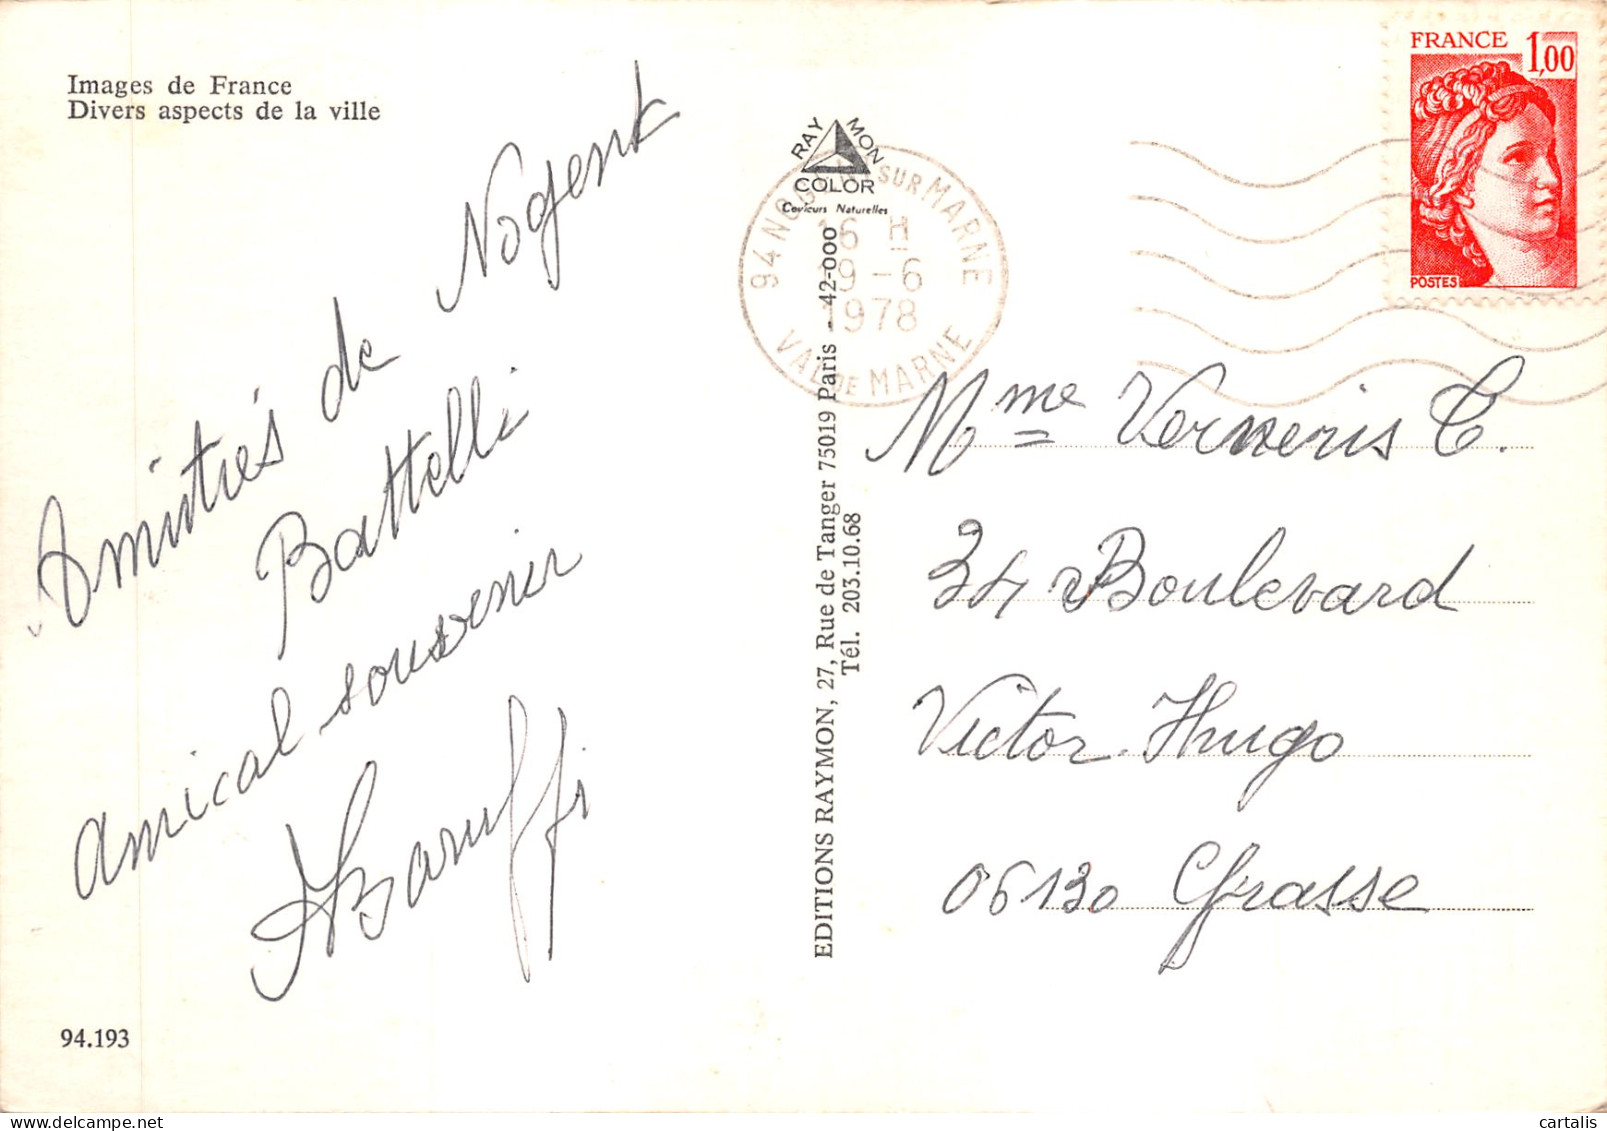 Images de France
Divers aspects de la ville
Amitiés de Nogent
Battelli
Amical souvenir
Baruffi
94.193
RAYMON
COLOR
Couleurs Naturelles
EDITIONS RAYMON, 27, Rue de Tanger 75019 Paris - 42-000
Tél. 203.10.68
94 NOGENT SUR MARNE
16 H
19-6
1978
VAL DE MARNE
FRANCE 1,00
POSTES
Mme C.
34 Boulevard
Victor Hugo
06130 Grasse
cartalis | delcampe.net